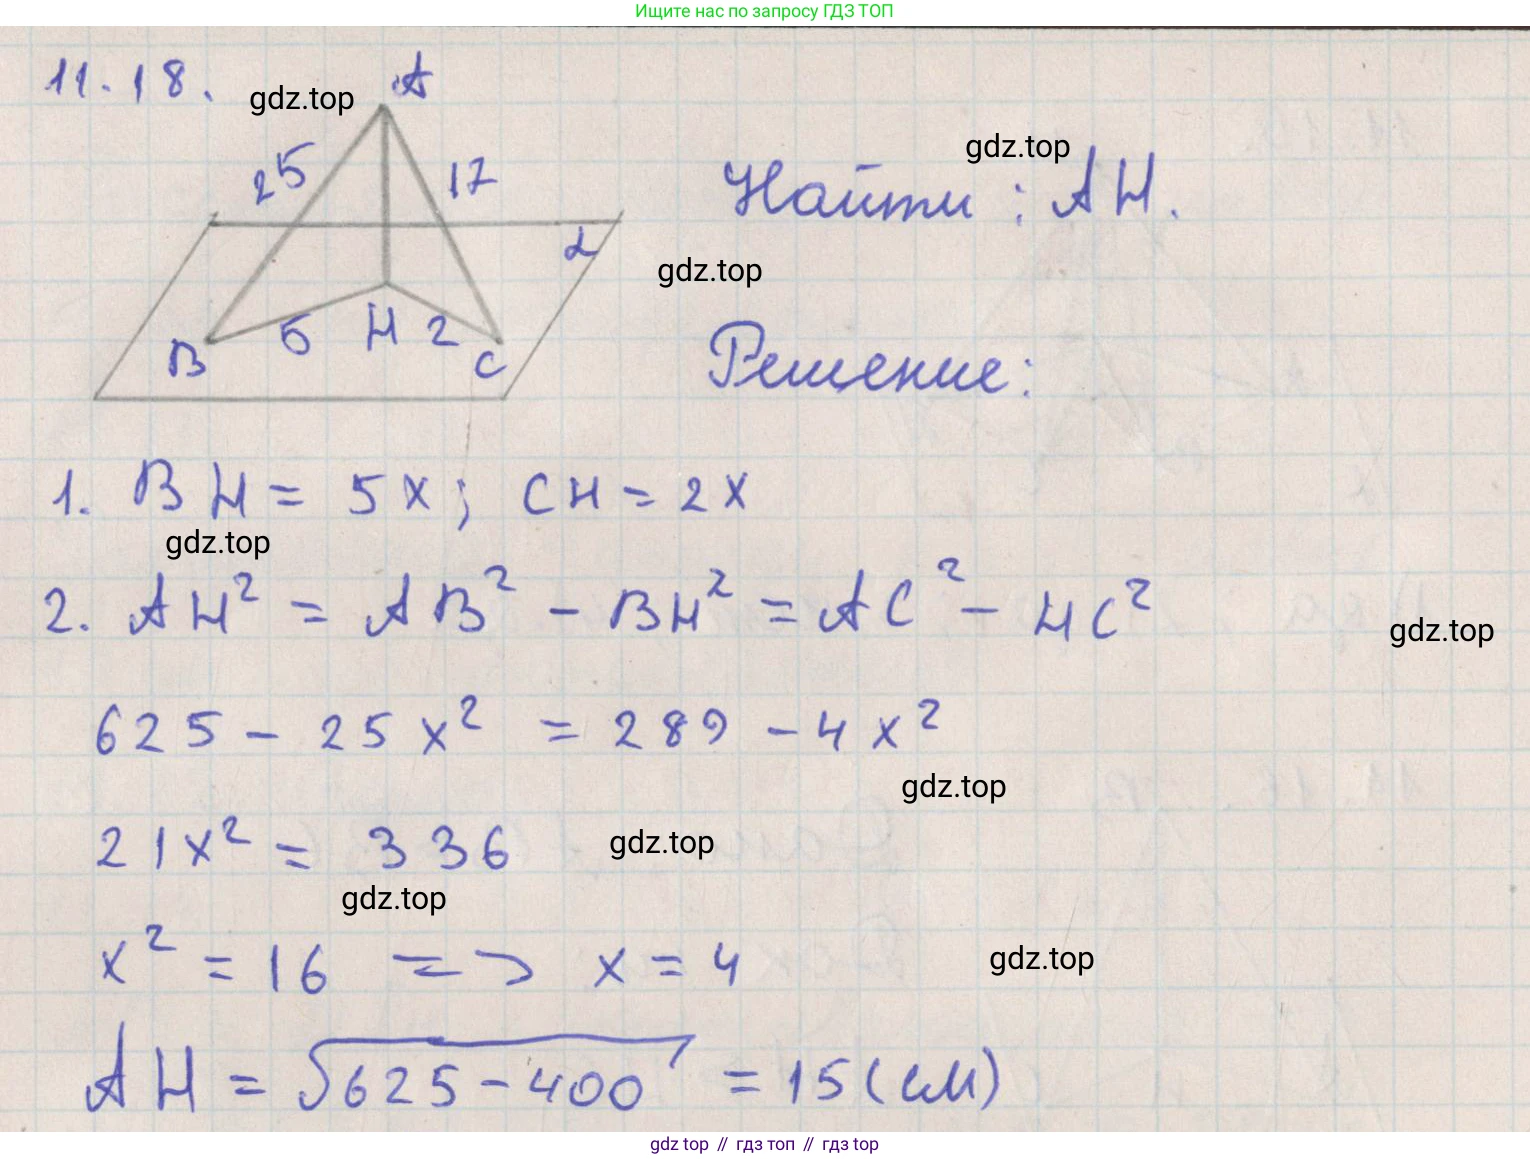 Ищите нас по запросу ГДЗ ТОП
11.18.
gdz.top
A
25
17
gdz.top
Найти : AH.
α
gdz.top
B
5
H
2
C
Решение:
1. BH = 5x; CH = 2x
gdz.top
2. AH² = AB² - BH² = AC² - HC²
gdz.top
625 - 25x² = 289 - 4x²
gdz.top
21x² = 336
gdz.top
gdz.top
x² = 16 => x = 4
gdz.top
AH = √625-400 = 15 (см)
gdz top // гдз топ // гдз top